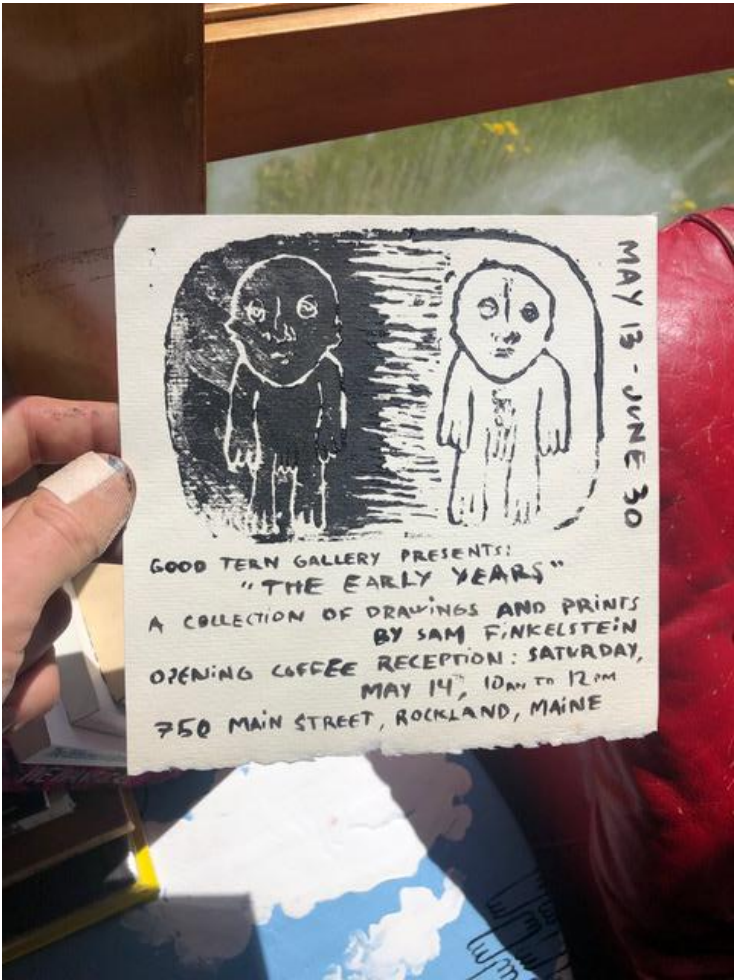 MAY 13 - JUNE 30
GOOD TERN GALLERY PRESENTS:
"THE EARLY YEARS"
A COLLECTION OF DRAWINGS AND PRINTS
BY SAM FINKELSTEIN
OPENING COFFEE RECEPTION: SATURDAY,
MAY 14th, 10AM TO 12PM
750 MAIN STREET, ROCKLAND, MAINE